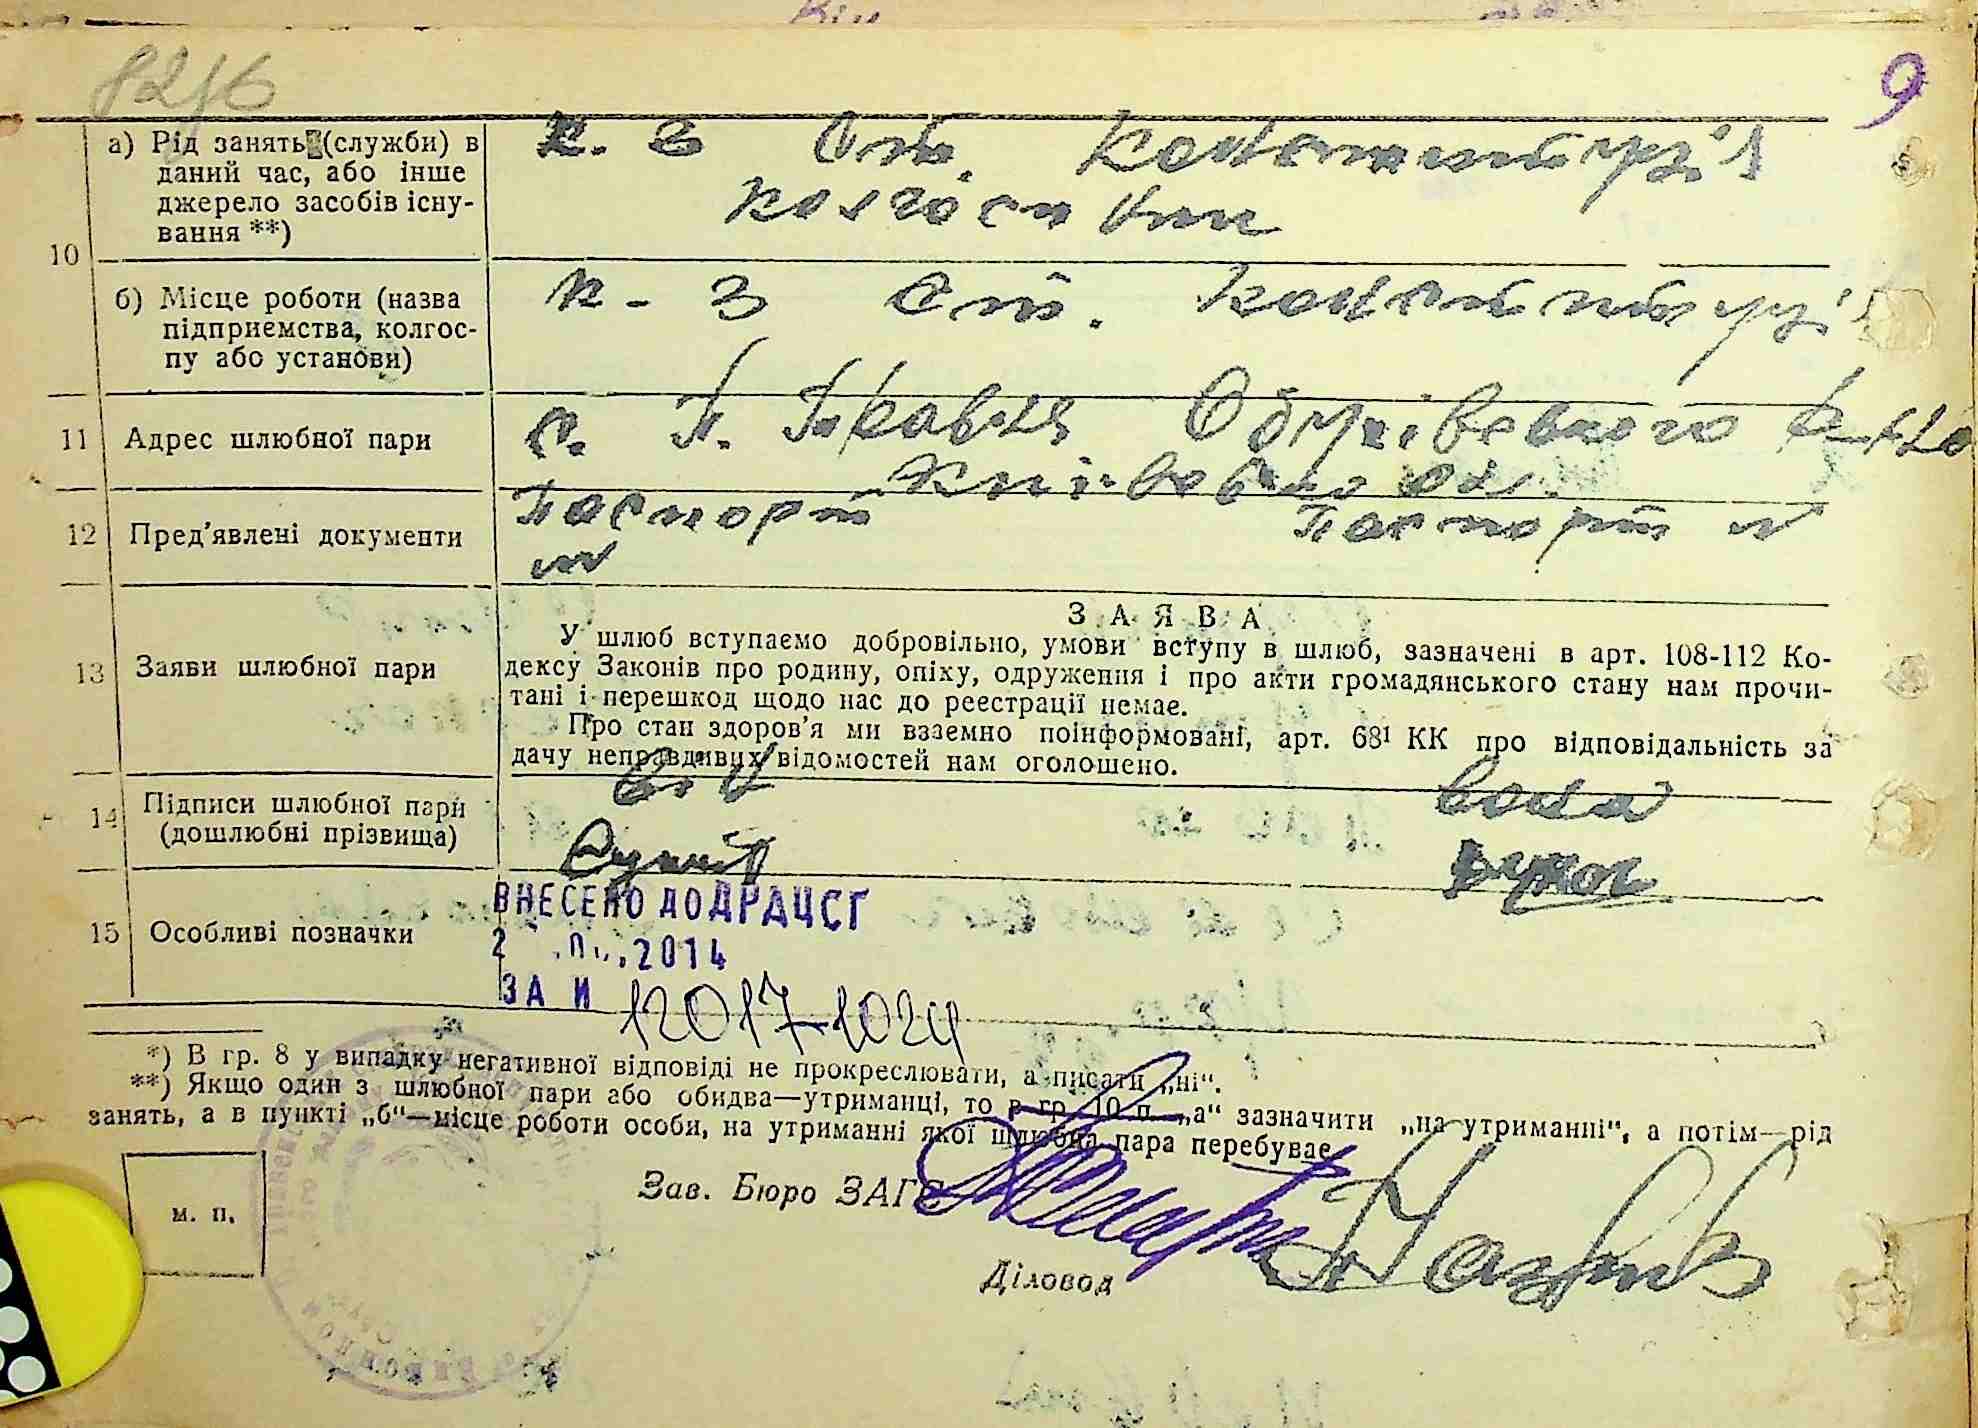 8216
9
10
а) Рід занять (служби) в
даний час, або інше
джерело засобів існу-
вання **)
к. з Ст. Конституції
колгоспник
б) Місце роботи (назва
підприємства, колгос-
пу або установи)
к-з Ст. Конституції
11 Адрес шлюбної пари
с. П. Обухівського р-ну
Київської обл.
12 Пред'явлені документи
Паспорт Паспорт
13 Заяви шлюбної пари
ЗАЯВА
У шлюб вступаємо добровільно, умови вступу в шлюб, зазначені в арт. 108-112 Ко-
дексу Законів про родину, опіку, одруження і про акти громадянського стану нам прочи-
тані і перешкод щодо нас до реестрації немає.
Про стан здоров'я ми взаємно поінформовані, арт. 68¹ КК про відповідальність за
дачу неправдивих відомостей нам оголошено.
14 Підписи шлюбної пари
(дошлюбні прізвища)
Він Вона
15 Особливі позначки
ВНЕСЕНО ДО ДРАЦСГ
2014
ЗА И 12017-1024
*) В гр. 8 у випадку негативної відповіді не прокреслювати, а писати „ні“.
**) Якщо один з шлюбної пари або обидва—утриманці, то в гр. 10 п. „а“ зазначити „на утриманні“, а потім—рід
занять, а в пункті „б“—місце роботи особи, на утриманні якої шлюбна пара перебуває.
м. п.
Зав. Бюро ЗАГС
Діловод